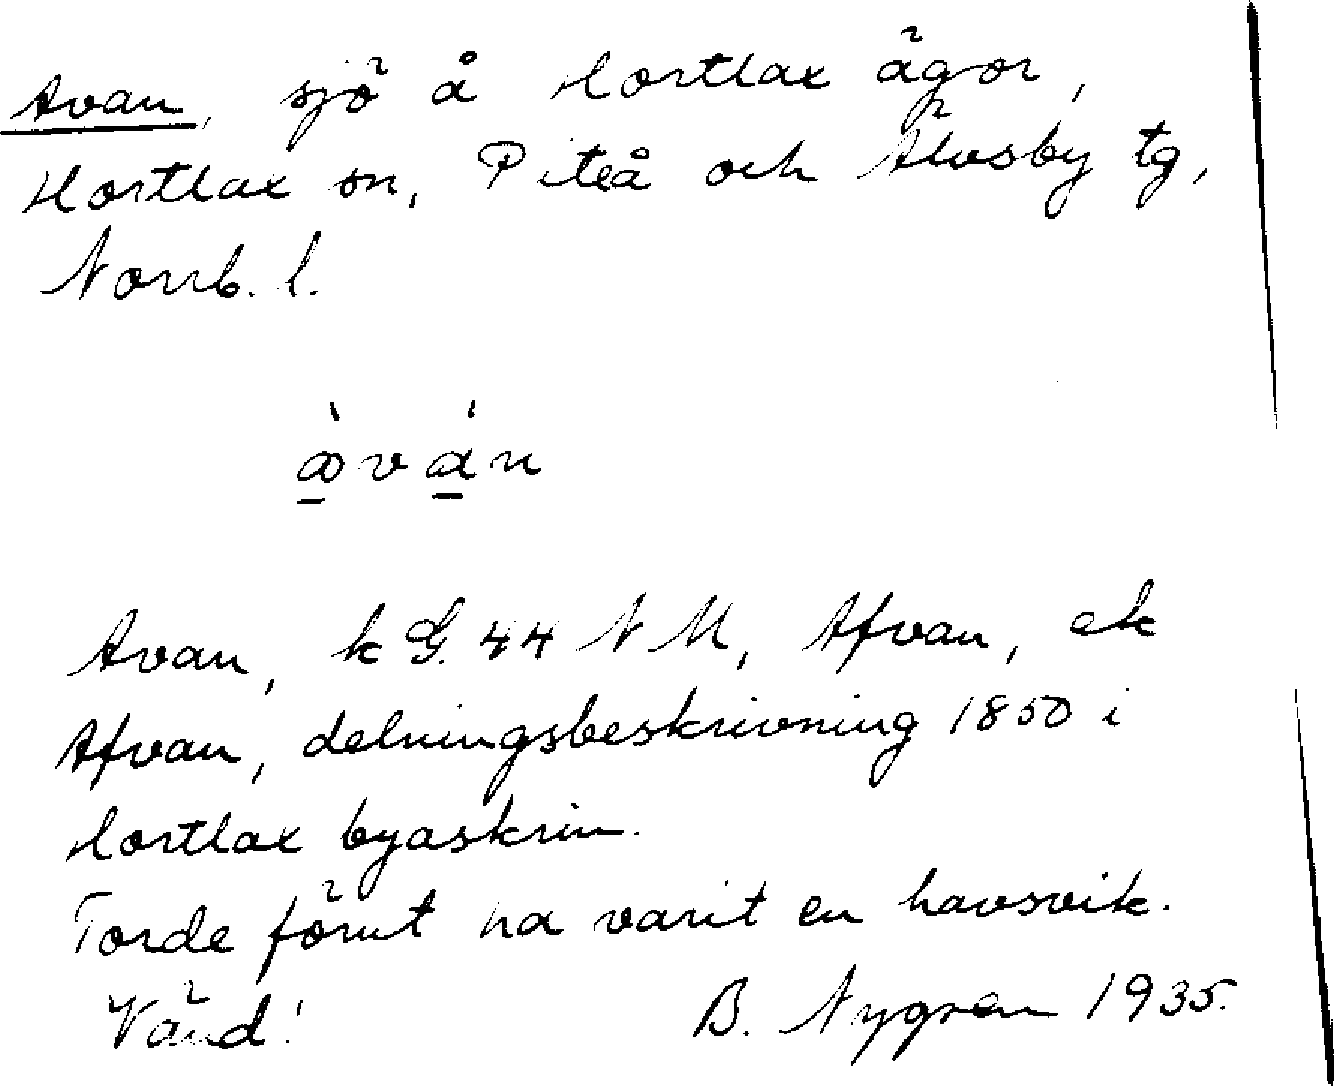 Avan, sjö å Hortlax ägor,
Hortlax sn, Piteå och Älvsby tg,
Norrb. l.
àván
Avan, k G. 44 N M, Afvan, ek
Afvan, delningsbeskrivning 1850 i
Hortlax byaskrin.
Torde förut ha varit en havsvik.
Vänd! B. Nygren 1935.